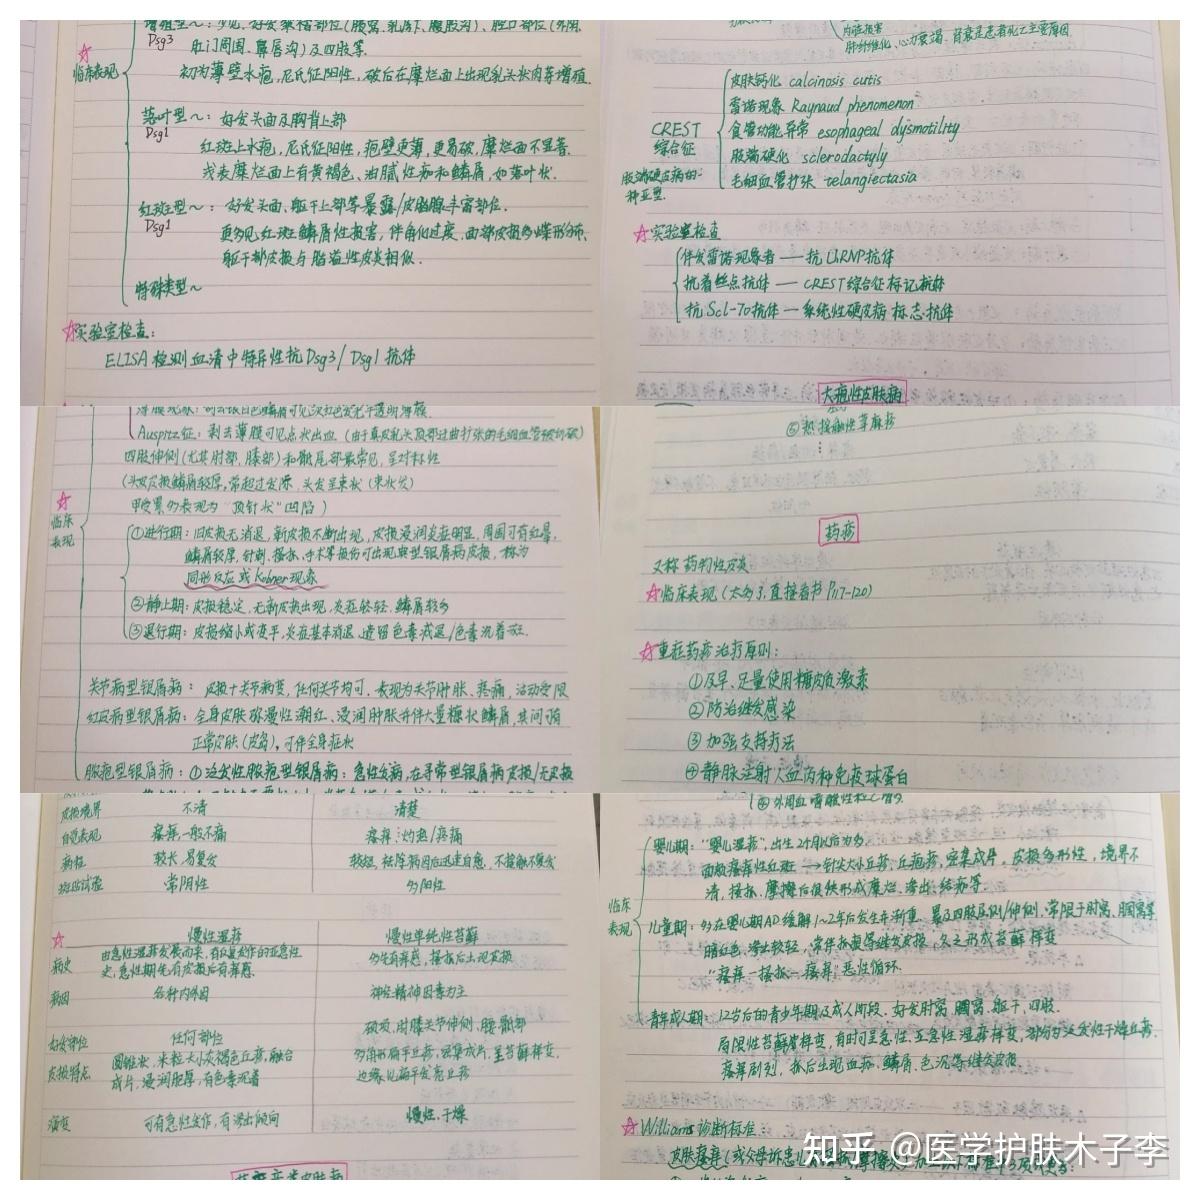 增殖型～：少见，好发皱褶部位(腋窝、乳房下、腹股沟)、腔口部位(外阴、
Dsg3
肛门周围、鼻唇沟)及四肢等.
临床表现
初为薄壁水疱，尼氏征阳性，破后在糜烂面上出现乳头状肉芽增殖.
落叶型～：好发头面及胸背上部
Dsg1
红斑上水疱，尼氏征阳性，疱壁更薄，更易破，糜烂面不显著.
浅表糜烂面上有黄褐色、油腻性痂和鳞屑，如落叶状.
红斑型～：好发头面、躯干上部等暴露/皮脂腺丰富部位.
Dsg1
更多见红斑鳞屑性损害，伴角化过度，面部皮损多蝶形分布，
躯干部皮损与脂溢性皮炎相似.
特殊类型～
☆实验室检查：
ELISA检测血清中特异性抗Dsg3/Dsg1抗体
内脏损害
肺纤维化、心力衰竭、肾衰是患者死亡主要原因
皮肤钙化 calcinosis cutis
雷诺现象 Raynaud phenomenon
CREST
综合征
食管功能异常 esophageal dysmotility
肢端硬化 sclerodactyly
毛细血管扩张 telangiectasia
肢端硬皮病的一
种亚型.
☆实验室检查
伴发雷诺现象者——抗U1RNP抗体
抗着丝点抗体——CREST综合征标记抗体
抗Scl-70抗体——系统性硬皮病标志抗体
大疱性皮肤病
薄膜现象：刮去银白色鳞屑可见淡红色发光半透明薄膜.
Auspitz征：剥去薄膜可见点状出血(由于真皮乳头顶部迂曲扩张的毛细血管被刮破)
四肢伸侧(尤其肘部、膝部)和骶尾部最常见，呈对称性
(头皮皮损鳞屑较厚，常超过发际，头发呈束状(束状发)
甲受累多表现为“顶针状”凹陷)
☆
临床
表现
①进行期：旧皮损无消退，新皮损不断出现，皮损浸润炎症明显，周围可有红晕，
鳞屑较厚，针刺、搔抓、手术等损伤可出现典型银屑病皮损，称为
同形反应或Kobner现象
②静止期：皮损稳定，无新皮损出现，炎症较轻，鳞屑较多
③退行期：皮损缩小或变平，炎症基本消退，遗留色素减退/色素沉着斑.
关节病型银屑病：皮损+关节病变，任何关节均可，表现为关节肿胀、疼痛，活动受限
红皮病型银屑病：全身皮肤弥漫性潮红、浸润肿胀并伴大量糠状鳞屑，其间可有
正常皮肤(皮岛)，可伴全身症状
脓疱型银屑病：①泛发性脓疱型银屑病：急性发病，在寻常型银屑病皮损/无皮损
⑥热接触性荨麻疹
药疹
又称药物性皮炎
☆临床表现(太多了，直接看书P117-120)
☆重症药疹治疗原则：
①及早、足量使用糖皮质激素
②防治继发感染
③加强支持疗法
④静脉注射人血丙种免疫球蛋白
皮损境界 不清 清楚
自觉表现 瘙痒，一般不痛 瘙痒、灼热/疼痛
病程 较长，易复发 较短，祛除病因后迅速自愈，不接触不复发
斑贴试验 常阴性 多阳性
☆ 慢性湿疹 慢性单纯性苔藓
病史 由急性湿疹发展而来，有反复发作的亚急性
史，急性期先有皮损后有痒感. 多先有痒感，搔抓后出现皮损
病因 各种内外因 神经精神因素为主
好发部位 任何部位 颈项、肘膝关节伸侧、腰骶部
皮损特点 圆锥状，米粒大小灰褐色丘疹，融合
成片，浸润肥厚，有色素沉着 多角形扁平丘疹，密集成片，呈苔藓样变，
边缘见扁平发亮丘疹
演变 可有急性发作，有渗出倾向 慢性，干燥
荨麻疹类皮肤病
婴儿期：“婴儿湿疹”，出生2个月以后为多.
面颊瘙痒性红斑→针尖大小丘疹、丘疱疹，密集成片，皮损多形性，境界不
清，搔抓、摩擦后很快形成糜烂、渗出、结痂等.
临床
表现
儿童期：多在婴儿期AD缓解1～2年后发生并渐重，累及四肢屈侧/伸侧，常限于肘窝、腘窝等
暗红色、渗出较轻，常伴抓痕等继发皮损，久之形成苔藓样变
“瘙痒—搔抓—瘙痒”恶性循环.
青年成人期：12岁后的青少年期及成人阶段，好发肘窝、腘窝、躯干、四肢.
局限性苔藓样变，有时可呈急性、亚急性湿疹样变，部分为泛发性干燥丘疹.
瘙痒剧烈，抓后出现血痂、鳞屑、色沉等继发皮损
☆Williams诊断标准：
知乎 @医学护肤木子李